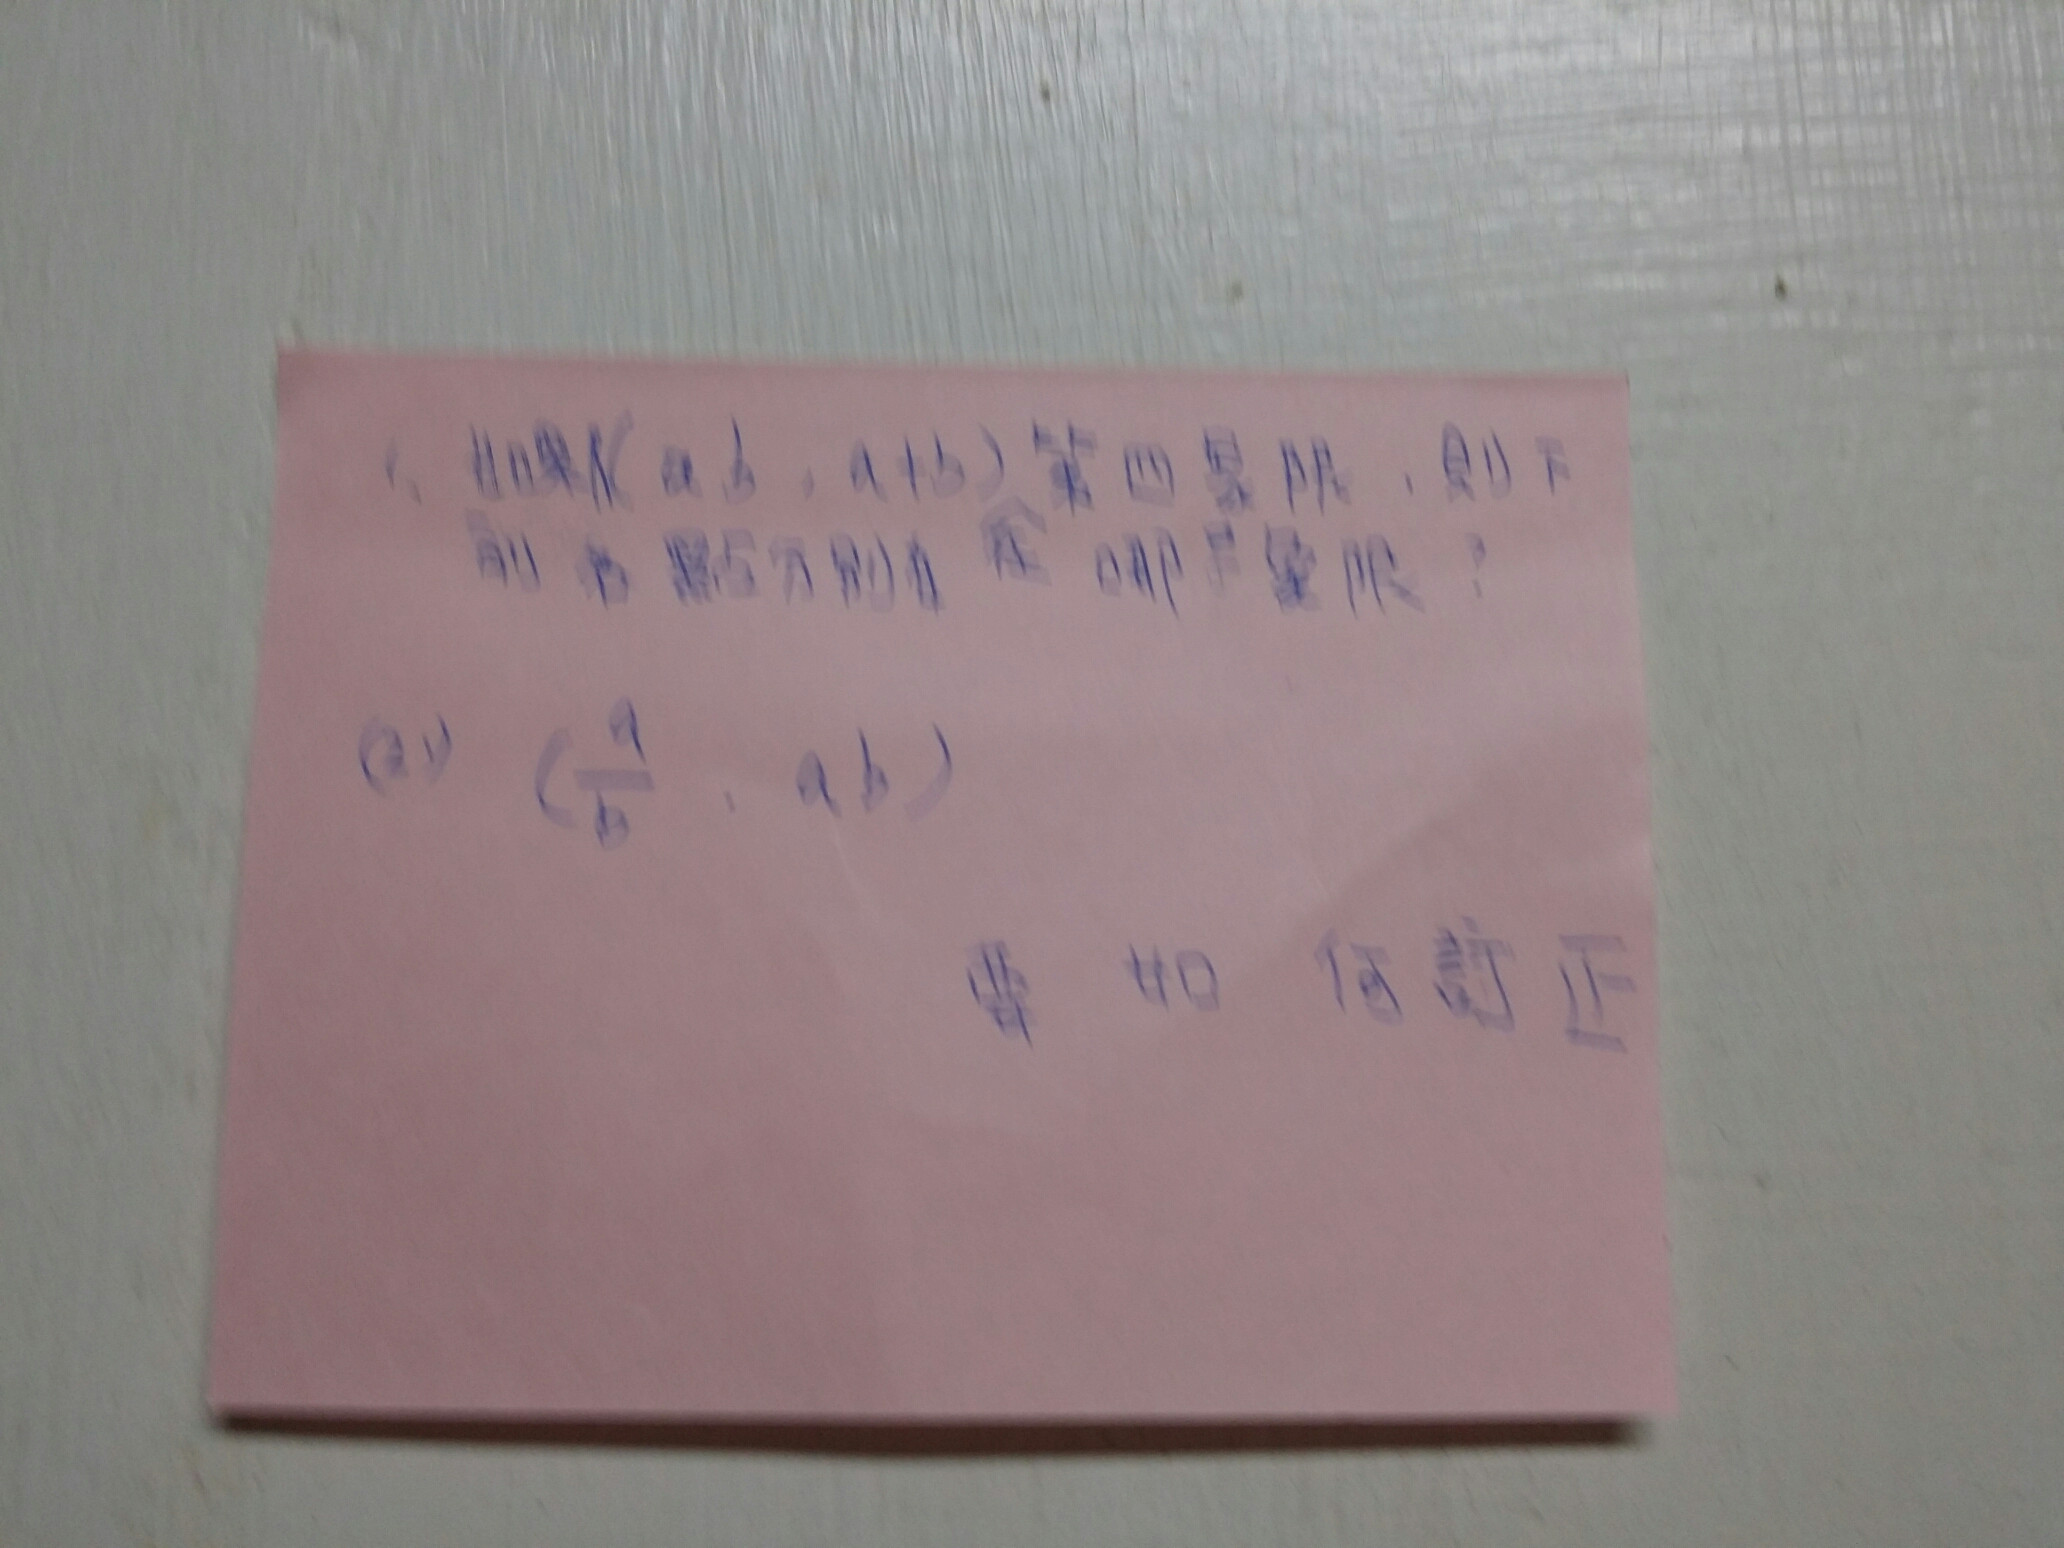 1. 如果(ab, a+b)第四象限,則下
列各點分別在 在 哪一象限?
(2) (a/b, ab)
要 如 何訂正